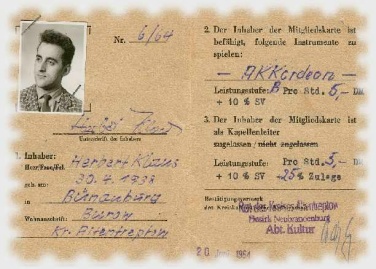 Nr. 6/64
Unterschrift des Inhabers
1. Inhaber: Herbert
Herr/Frau/Frl.
geb. am: 30. 4. 1938
in
Wohnanschrift: Burow
Kr. Altentreptow
2. Der Inhaber der Mitgliedskarte ist
befähigt, folgende Instrumente zu
spielen:
— Akkordeon —
Leistungsstufe: B Pro Std. 5,- DM
+ 10 % SV
3. Der Inhaber der Mitgliedskarte ist
als Kapellenleiter
zugelassen / nicht zugelassen
Leistungsstufe: Pro Std. 5,- DM
+ 10 % SV + 25% Zulage
Bestätigungsvermerk
des Kreis Rat des Kreises Altentreptow
Bezirk Neubrandenburg
Abt. Kultur
20. 1964